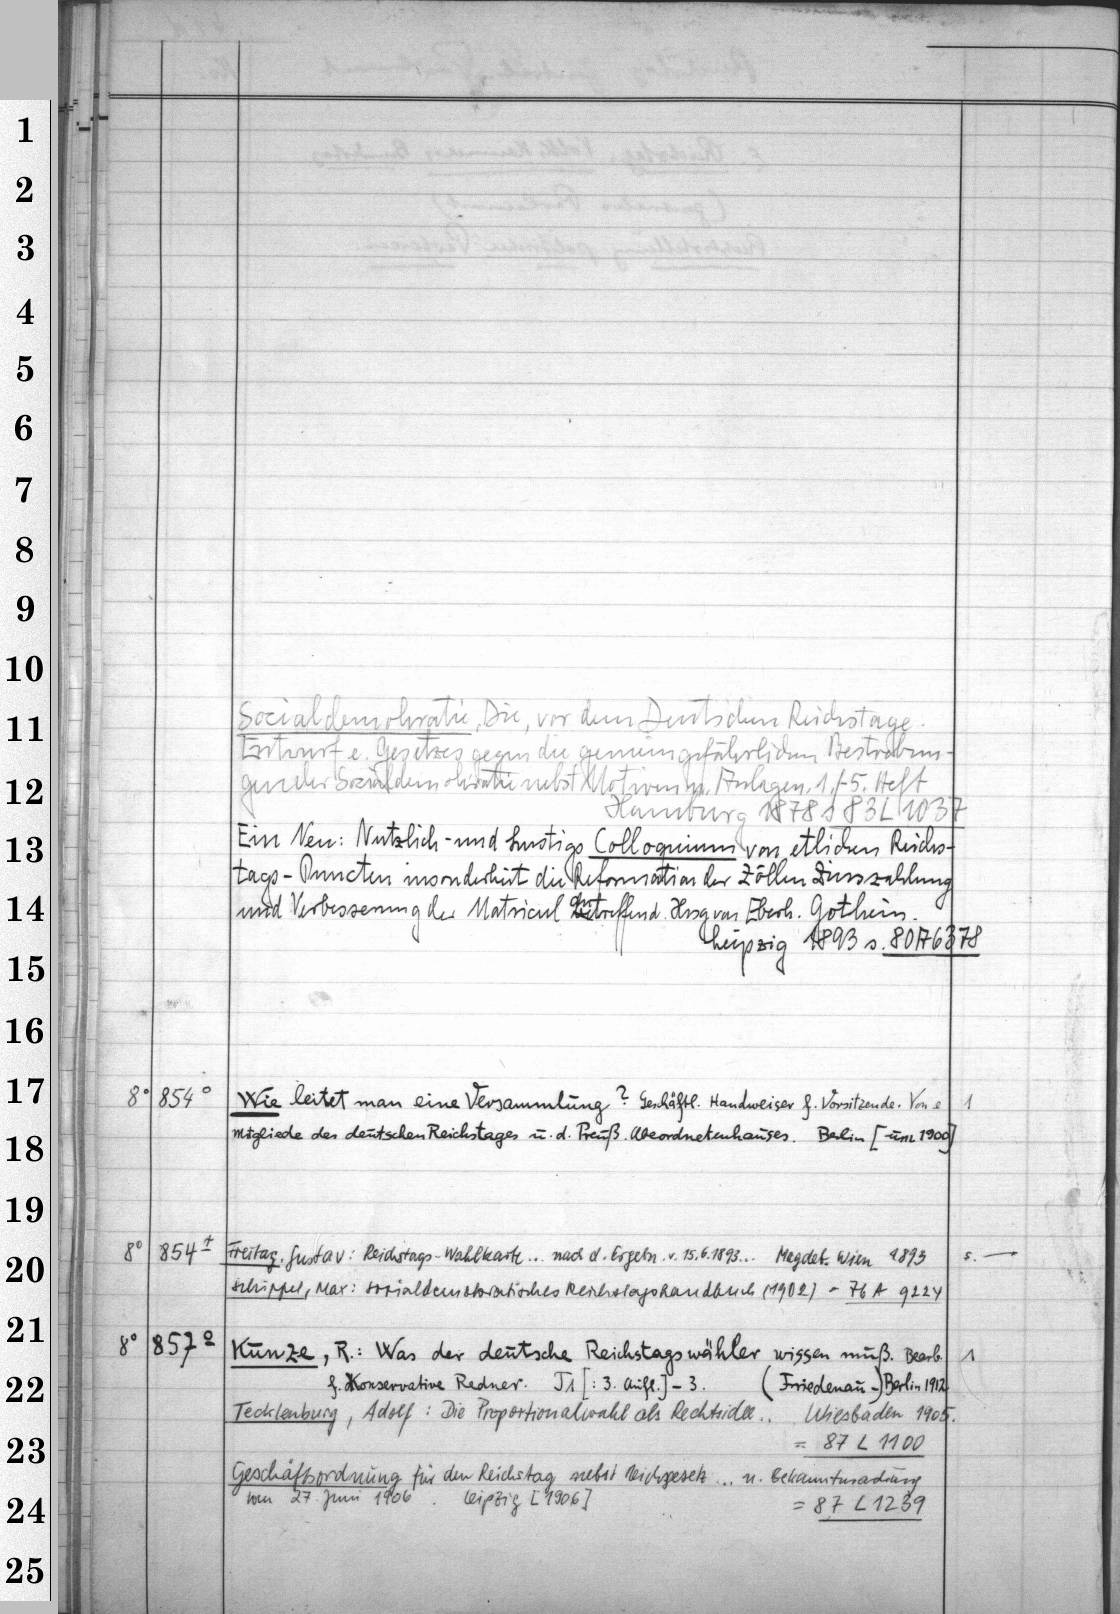 1
2
3
4
5
6
7
8
9
10
11 Socialdemokratie, Die, vor dem Deutschen Reichstage.
Entwurf e. Gesetzes gegen die gemeingefährlichen Bestrebun-
12 gen der Socialdemokratie nebst Motiven u. Anlagen. 1.-5. Heft
Hamburg 1878 s 83 L 1037
13 Ein Neu: Nutzlich- und lustigs Colloquium von etlichen Reichs-
tags-Puncten insonderheit die Reformation der Zöllen Zinszahlung
14 und Verbesserung der Matricul antreffend. Hrsg von Eberh. Gothein.
Leipzig 1893 s. 80 A 6378
15
16
17 8° 854° Wie leitet man eine Versammlung? Geschäftl. Handweiser f. Vorsitzende. Von e 1
18 Mitgliede des deutschen Reichstages u. d. Preuß. Abeordnetenhauses. Berlin [um 1900]
19
20 8° 854+ Freitag, Gustav: Reichstags-Wahlkarte... nach d. Ergebn. v. 15.6.1893... Magdeb. Wien 1893 s. —
Schippel, Max: Sozialdemokratisches Reichstagshandbuch (1902) = 76 A 9224
21 8° 857° Kunze, R.: Was der deutsche Reichstagswähler wissen muß. Bearb. 1
22 f. Konservative Redner. J1 [: 3. Aufl.] - 3. (Friedenau-) Berlin 1912
Tecklenburg, Adolf: Die Proportionalwahl als Rechtsidee.. Wiesbaden 1905.
23 = 87 L 1100
Geschäftsordnung für den Reichstag nebst Reichsgesetz... u. Bekanntmachung
24 vom 27. Juni 1906. Leipzig [1906] = 87 L 1239
25